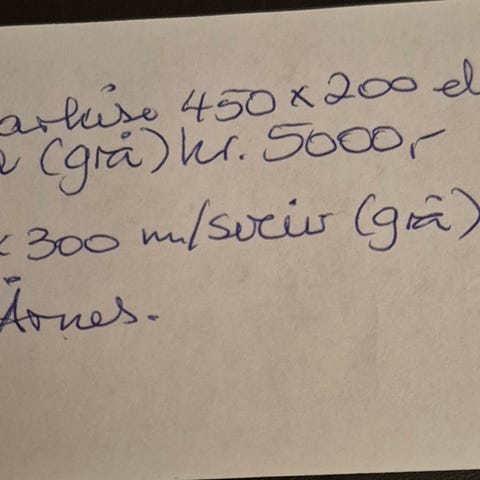 arkise 450 x 200 el
(grå) kr. 5000,-
x 300 m/sveiv (grå)
Årnes.